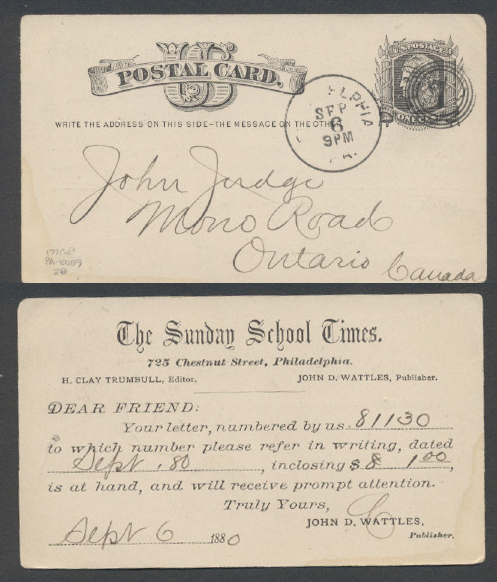 U.S. POSTAGE
US
POSTAL CARD.
ONE CENT
WRITE THE ADDRESS ON THIS SIDE-THE MESSAGE ON THE OTHER
ELPHIA
SEP
6
9PM
PA.
John Judge
Mono Road
Ontario
Canada
The Sunday School Times.
725 Chestnut Street, Philadelphia.
H. CLAY TRUMBULL, Editor. JOHN D. WATTLES, Publisher.
DEAR FRIEND:
Your letter, numbered by us 81130
to which number please refer in writing, dated
Sept. 80, inclosing $ 1.00,
is at hand, and will receive prompt attention.
Truly Yours,
JOHN D. WATTLES,
Publisher.
Sept 6 1880